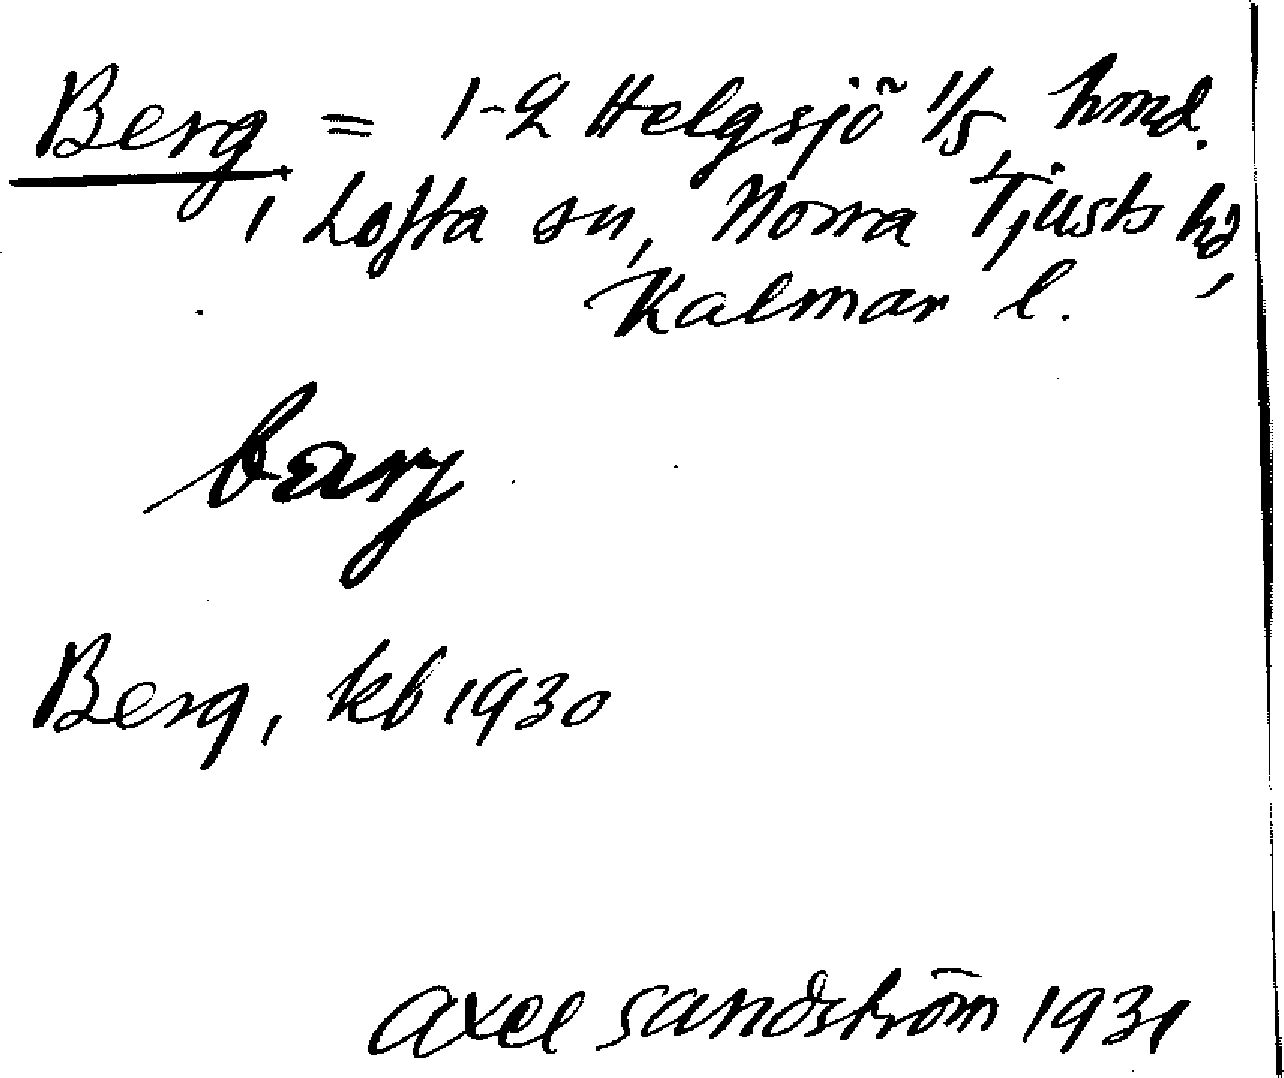 Berg = 1-2 Helgsjö 1/5 hmd.
, Lofta sn, Norra Tjusts hd,
Kalmar l.
barj
Berg, kb 1930
Axel Sandström 1931